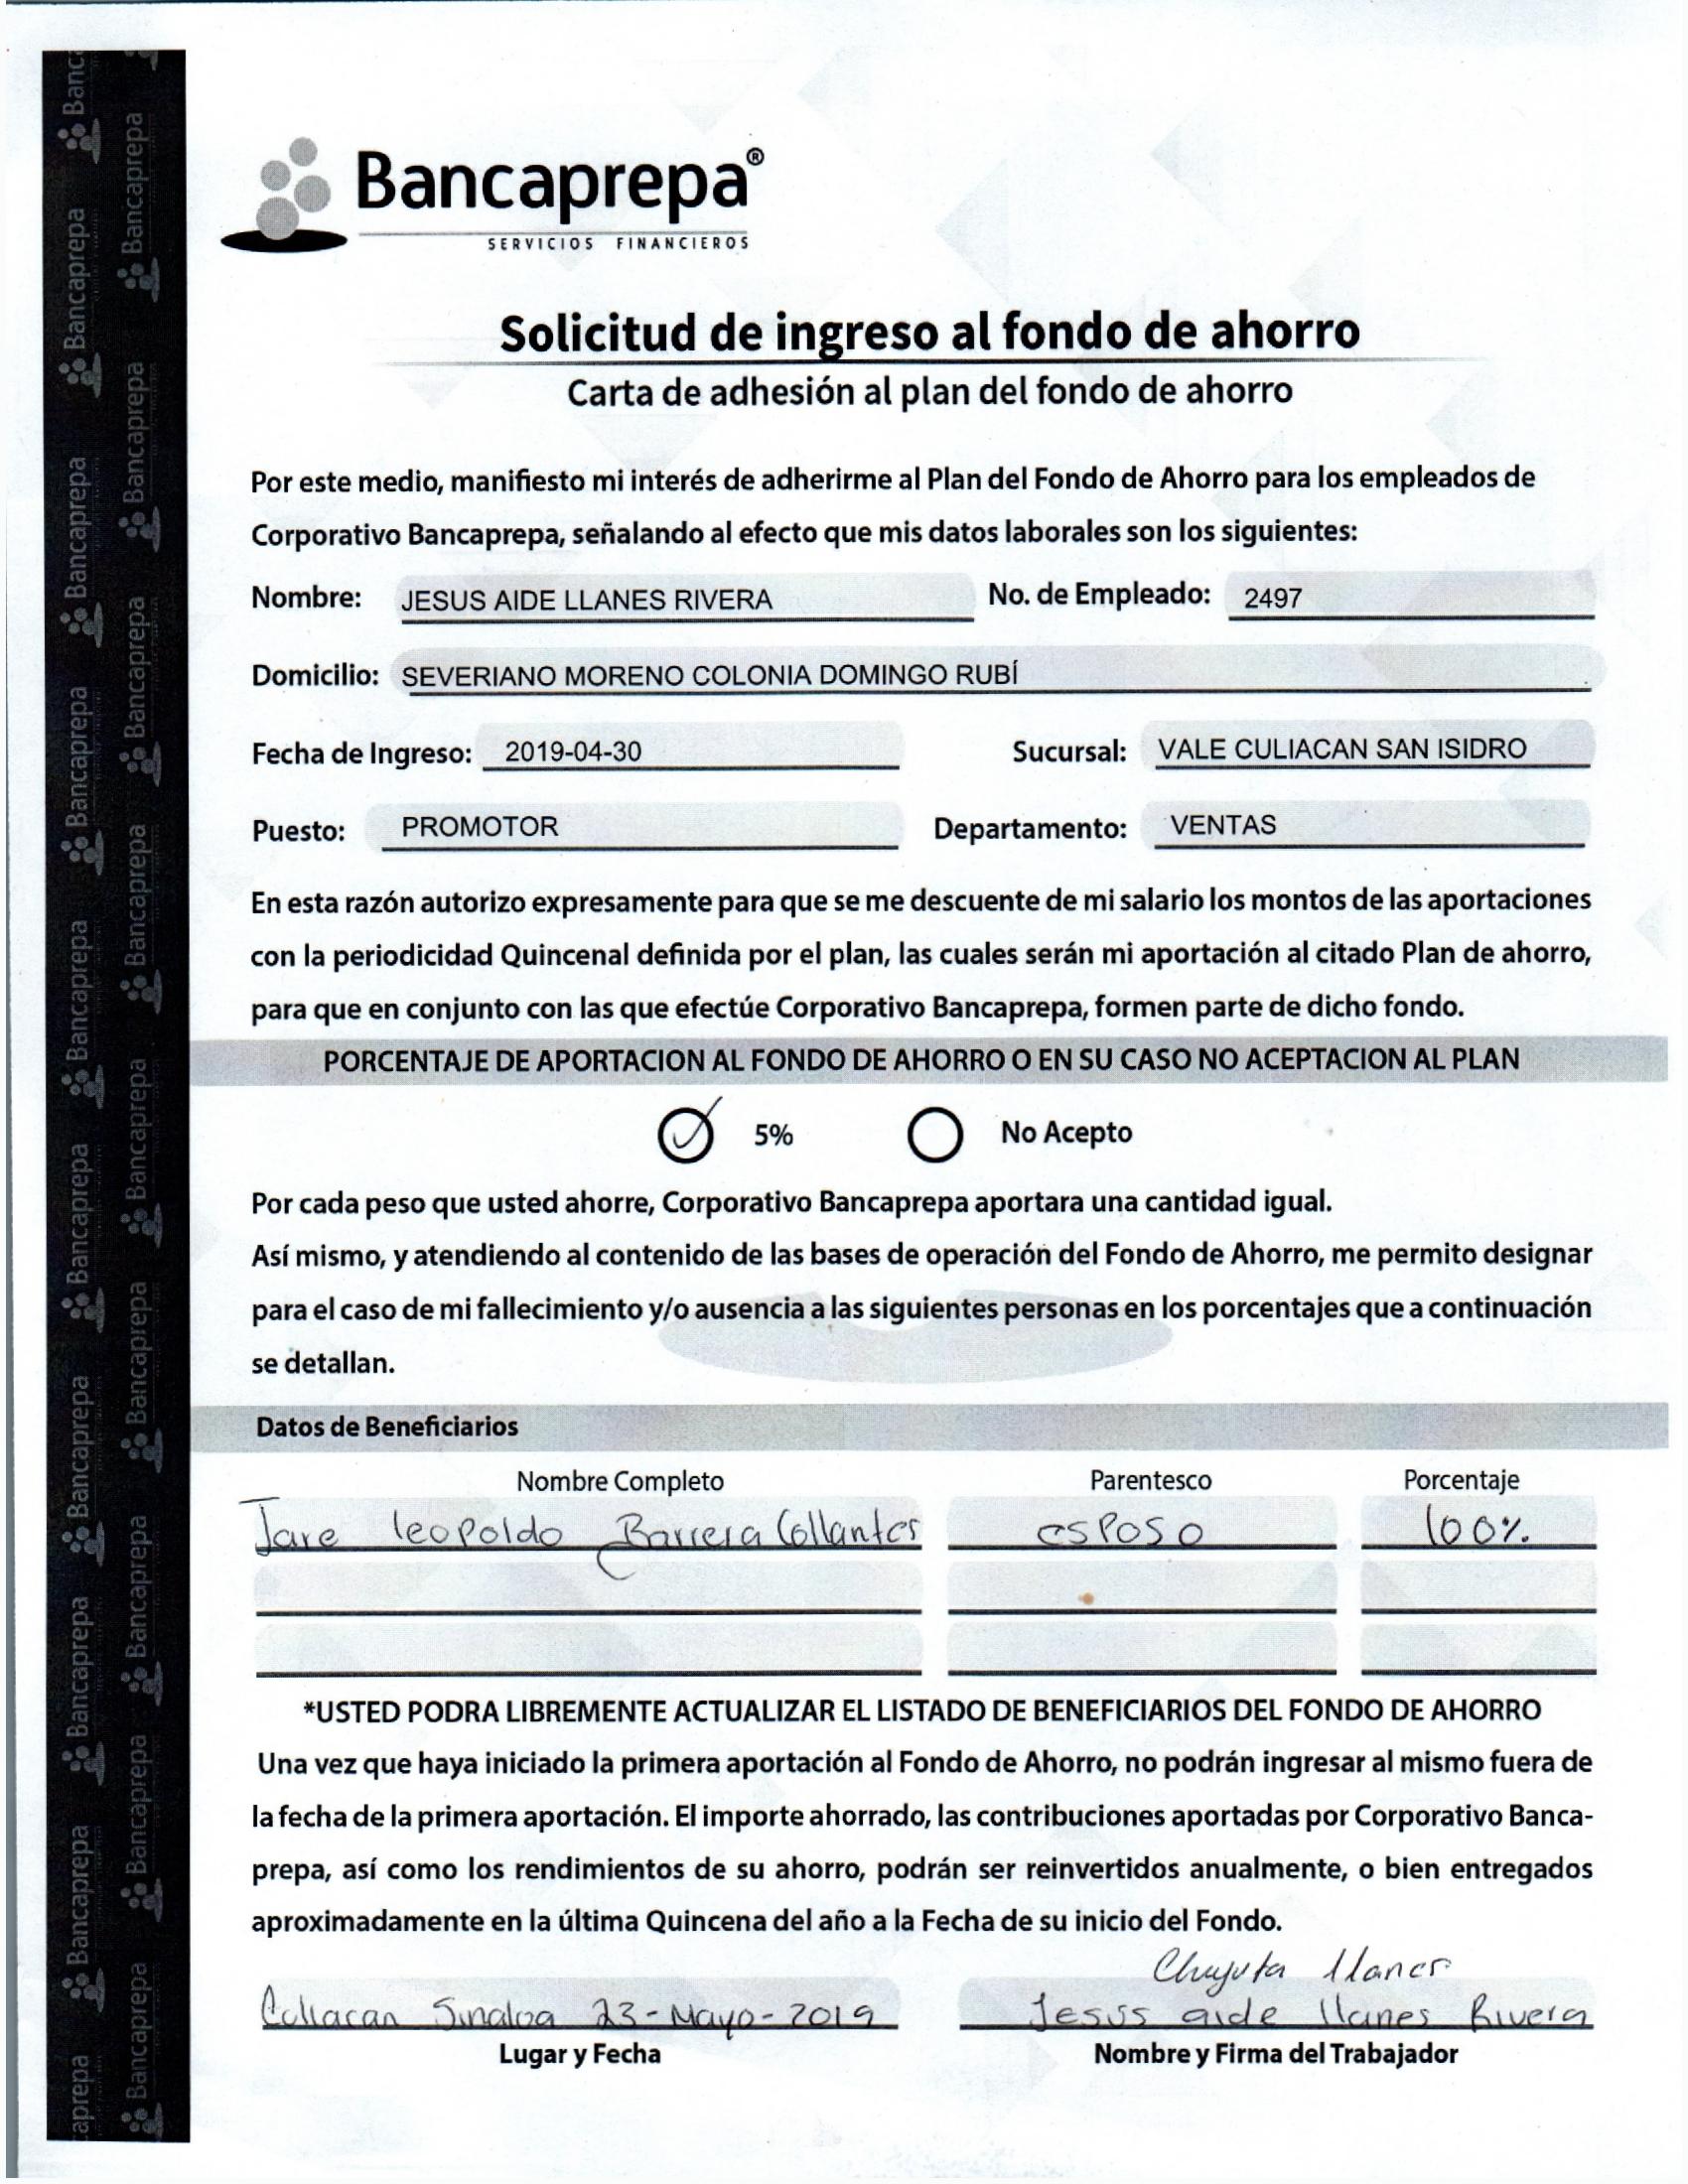 Bancaprepa®
SERVICIOS FINANCIEROS
Solicitud de ingreso al fondo de ahorro
Carta de adhesión al plan del fondo de ahorro
Por este medio, manifiesto mi interés de adherirme al Plan del Fondo de Ahorro para los empleados de
Corporativo Bancaprepa, señalando al efecto que mis datos laborales son los siguientes:
Nombre: JESUS AIDE LLANES RIVERA No. de Empleado: 2497
Domicilio: SEVERIANO MORENO COLONIA DOMINGO RUBÍ
Fecha de Ingreso: 2019-04-30 Sucursal: VALE CULIACAN SAN ISIDRO
Puesto: PROMOTOR Departamento: VENTAS
En esta razón autorizo expresamente para que se me descuente de mi salario los montos de las aportaciones
con la periodicidad Quincenal definida por el plan, las cuales serán mi aportación al citado Plan de ahorro,
para que en conjunto con las que efectúe Corporativo Bancaprepa, formen parte de dicho fondo.
PORCENTAJE DE APORTACION AL FONDO DE AHORRO O EN SU CASO NO ACEPTACION AL PLAN
5% No Acepto
Por cada peso que usted ahorre, Corporativo Bancaprepa aportara una cantidad igual.
Así mismo, y atendiendo al contenido de las bases de operación del Fondo de Ahorro, me permito designar
para el caso de mi fallecimiento y/o ausencia a las siguientes personas en los porcentajes que a continuación
se detallan.
Datos de Beneficiarios
Nombre Completo Parentesco Porcentaje
Jare leopoldo Barrera Collantes esposo 100%
*USTED PODRA LIBREMENTE ACTUALIZAR EL LISTADO DE BENEFICIARIOS DEL FONDO DE AHORRO
Una vez que haya iniciado la primera aportación al Fondo de Ahorro, no podrán ingresar al mismo fuera de
la fecha de la primera aportación. El importe ahorrado, las contribuciones aportadas por Corporativo Banca-
prepa, así como los rendimientos de su ahorro, podrán ser reinvertidos anualmente, o bien entregados
aproximadamente en la última Quincena del año a la Fecha de su inicio del Fondo.
Chuyita llanes
Culiacan Sinaloa 23-Mayo-2019 Jesus aide llanes Rivera
Lugar y Fecha Nombre y Firma del Trabajador